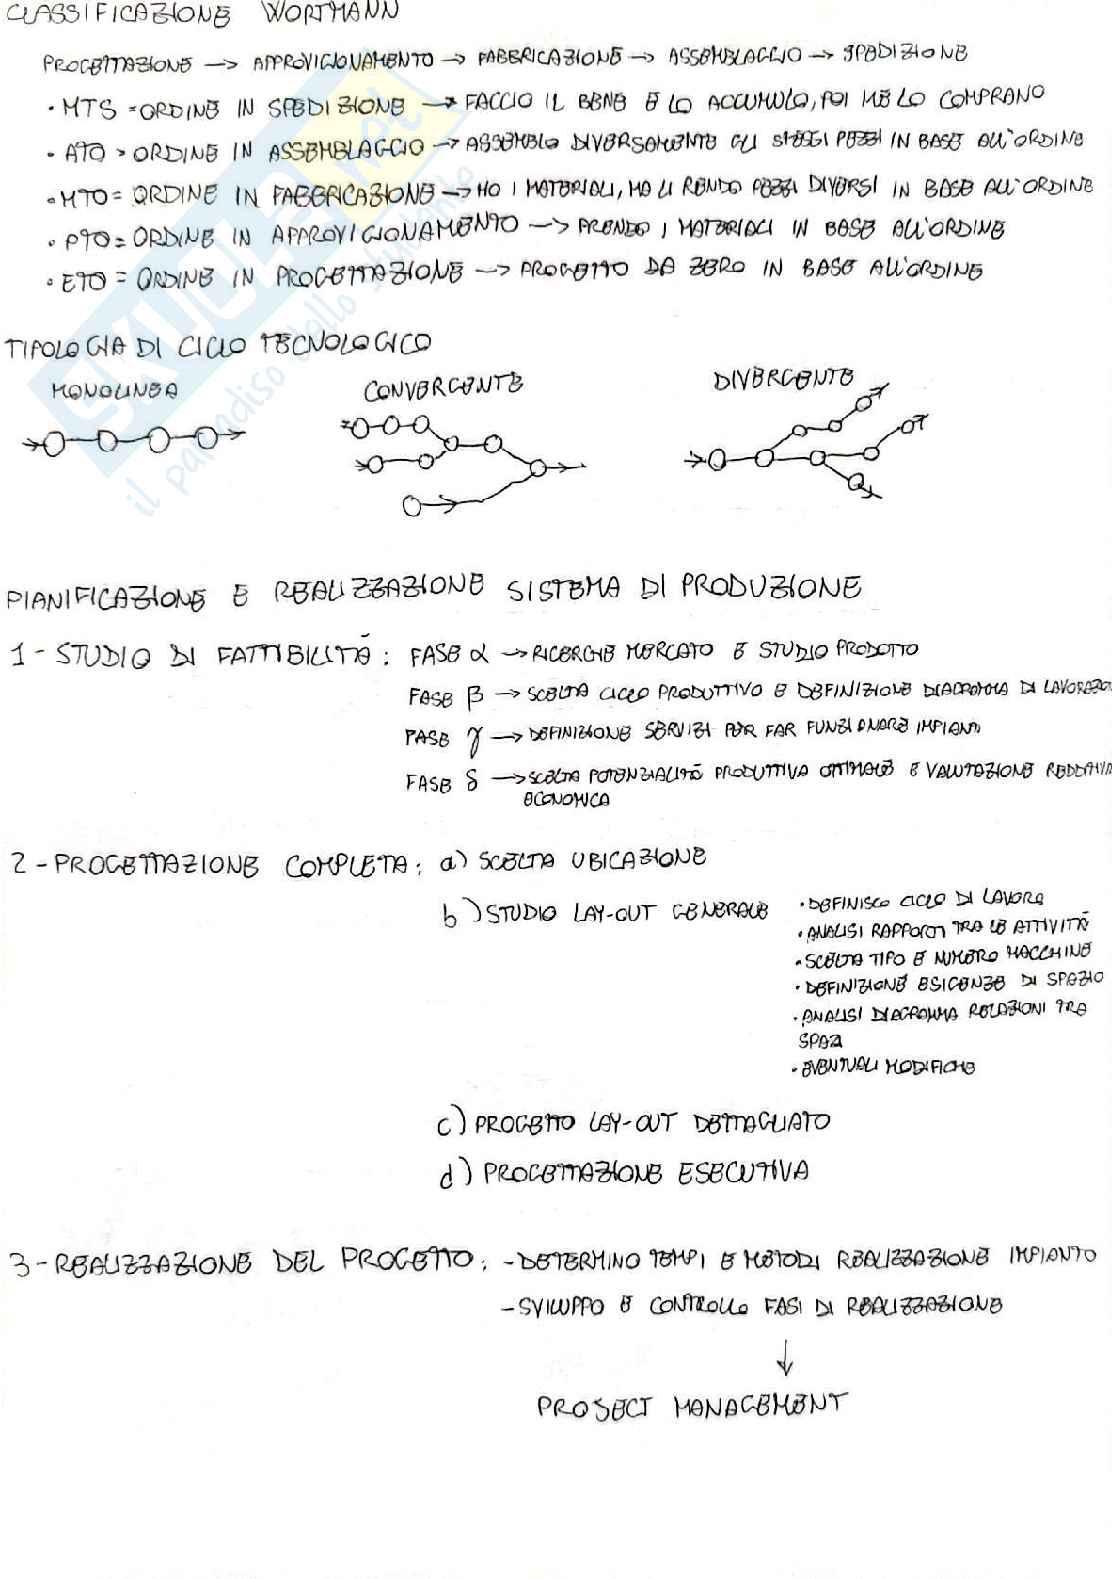 CLASSIFICAZIONE WORTMANN
PROGETTAZIONE → APPROVIGIONAMENTO → FABBRICAZIONE → ASSEMBLAGGIO → SPEDIZIONE
• MTS = ORDINE IN SPEDIZIONE → FACCIO IL BENE E LO ACCUMULO, POI ME LO COMPRANO
• ATO = ORDINE IN ASSEMBLAGGIO → ASSEMBLO DIVERSAMENTE GLI STESSI PEZZI IN BASE ALL'ORDINE
• MTO = ORDINE IN FABBRICAZIONE → HO I MATERIALI, MA LI RENDO PEZZI DIVERSI IN BASE ALL'ORDINE
• PTO = ORDINE IN APPROVIGIONAMENTO → PRENDO I MATERIALI IN BASE ALL'ORDINE
• ETO = ORDINE IN PROGETTAZIONE → PROGETTO DA ZERO IN BASE ALL'ORDINE
SKUOLA.net
il paradiso dello studente
TIPOLOGIA DI CICLO TECNOLOGICO
MONOLINEA CONVERGENTE DIVERGENTE
PIANIFICAZIONE E REALIZZAZIONE SISTEMA DI PRODUZIONE
1 - STUDIO DI FATTIBILITÀ : FASE α → RICERCHE MERCATO E STUDIO PRODOTTO
FASE β → SCELTA CICLO PRODUTTIVO E DEFINIZIONE DIAGRAMMA DI LAVORAZIO
FASE γ → DEFINIZIONE SERVIZI PER FAR FUNZIONARE IMPIANTI
FASE δ → SCELTA POTENZIALITÀ PRODUTTIVA OTTIMALE E VALUTAZIONE REDDITIVI
ECONOMICA
2 - PROGETTAZIONE COMPLETA : a) SCELTA UBICAZIONE
b) STUDIO LAY-OUT GENERALE
• DEFINISCO CICLO DI LAVORO
• ANALISI RAPPORTI TRA LE ATTIVITÀ
• SCELTA TIPO E NUMERO MACCHINE
• DEFINIZIONE ESIGENZE DI SPAZIO
• ANALISI DIAGRAMMA RELAZIONI TRA
SPAZI
• EVENTUALI MODIFICHE
c) PROGETTO LAY-OUT DETTAGLIATO
d) PROGETTAZIONE ESECUTIVA
3 - REALIZZAZIONE DEL PROGETTO : - DETERMINO TEMPI E METODI REALIZZAZIONE IMPIANTO
- SVILUPPO E CONTROLLO FASI DI REALIZZAZIONE
↓
PROJECT MANAGEMENT